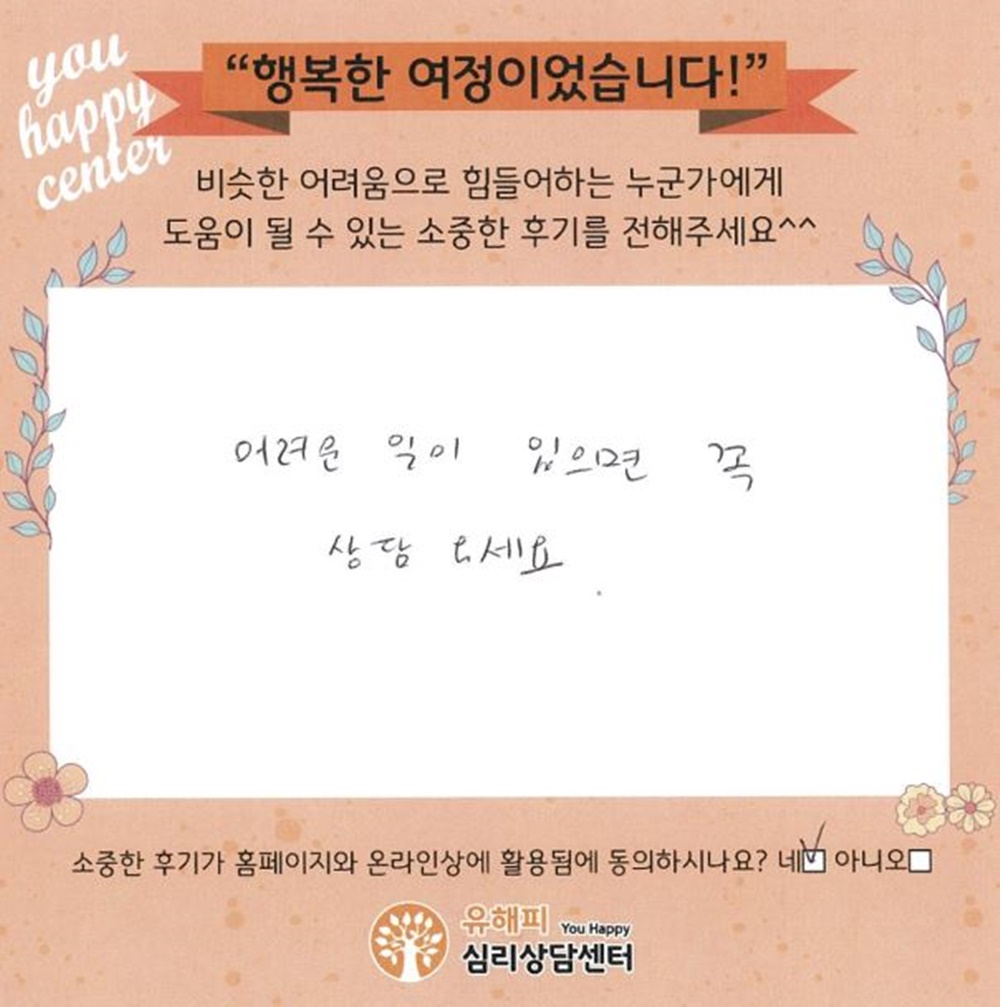 you
happy
center
“행복한 여정이었습니다!”
비슷한 어려움으로 힘들어하는 누군가에게
도움이 될 수 있는 소중한 후기를 전해주세요^^
어려운 일이 있으면 꼭
상담 오세요.
소중한 후기가 홈페이지와 온라인상에 활용됨에 동의하시나요? 네☑ 아니오☐
유해피 You Happy
심리상담센터